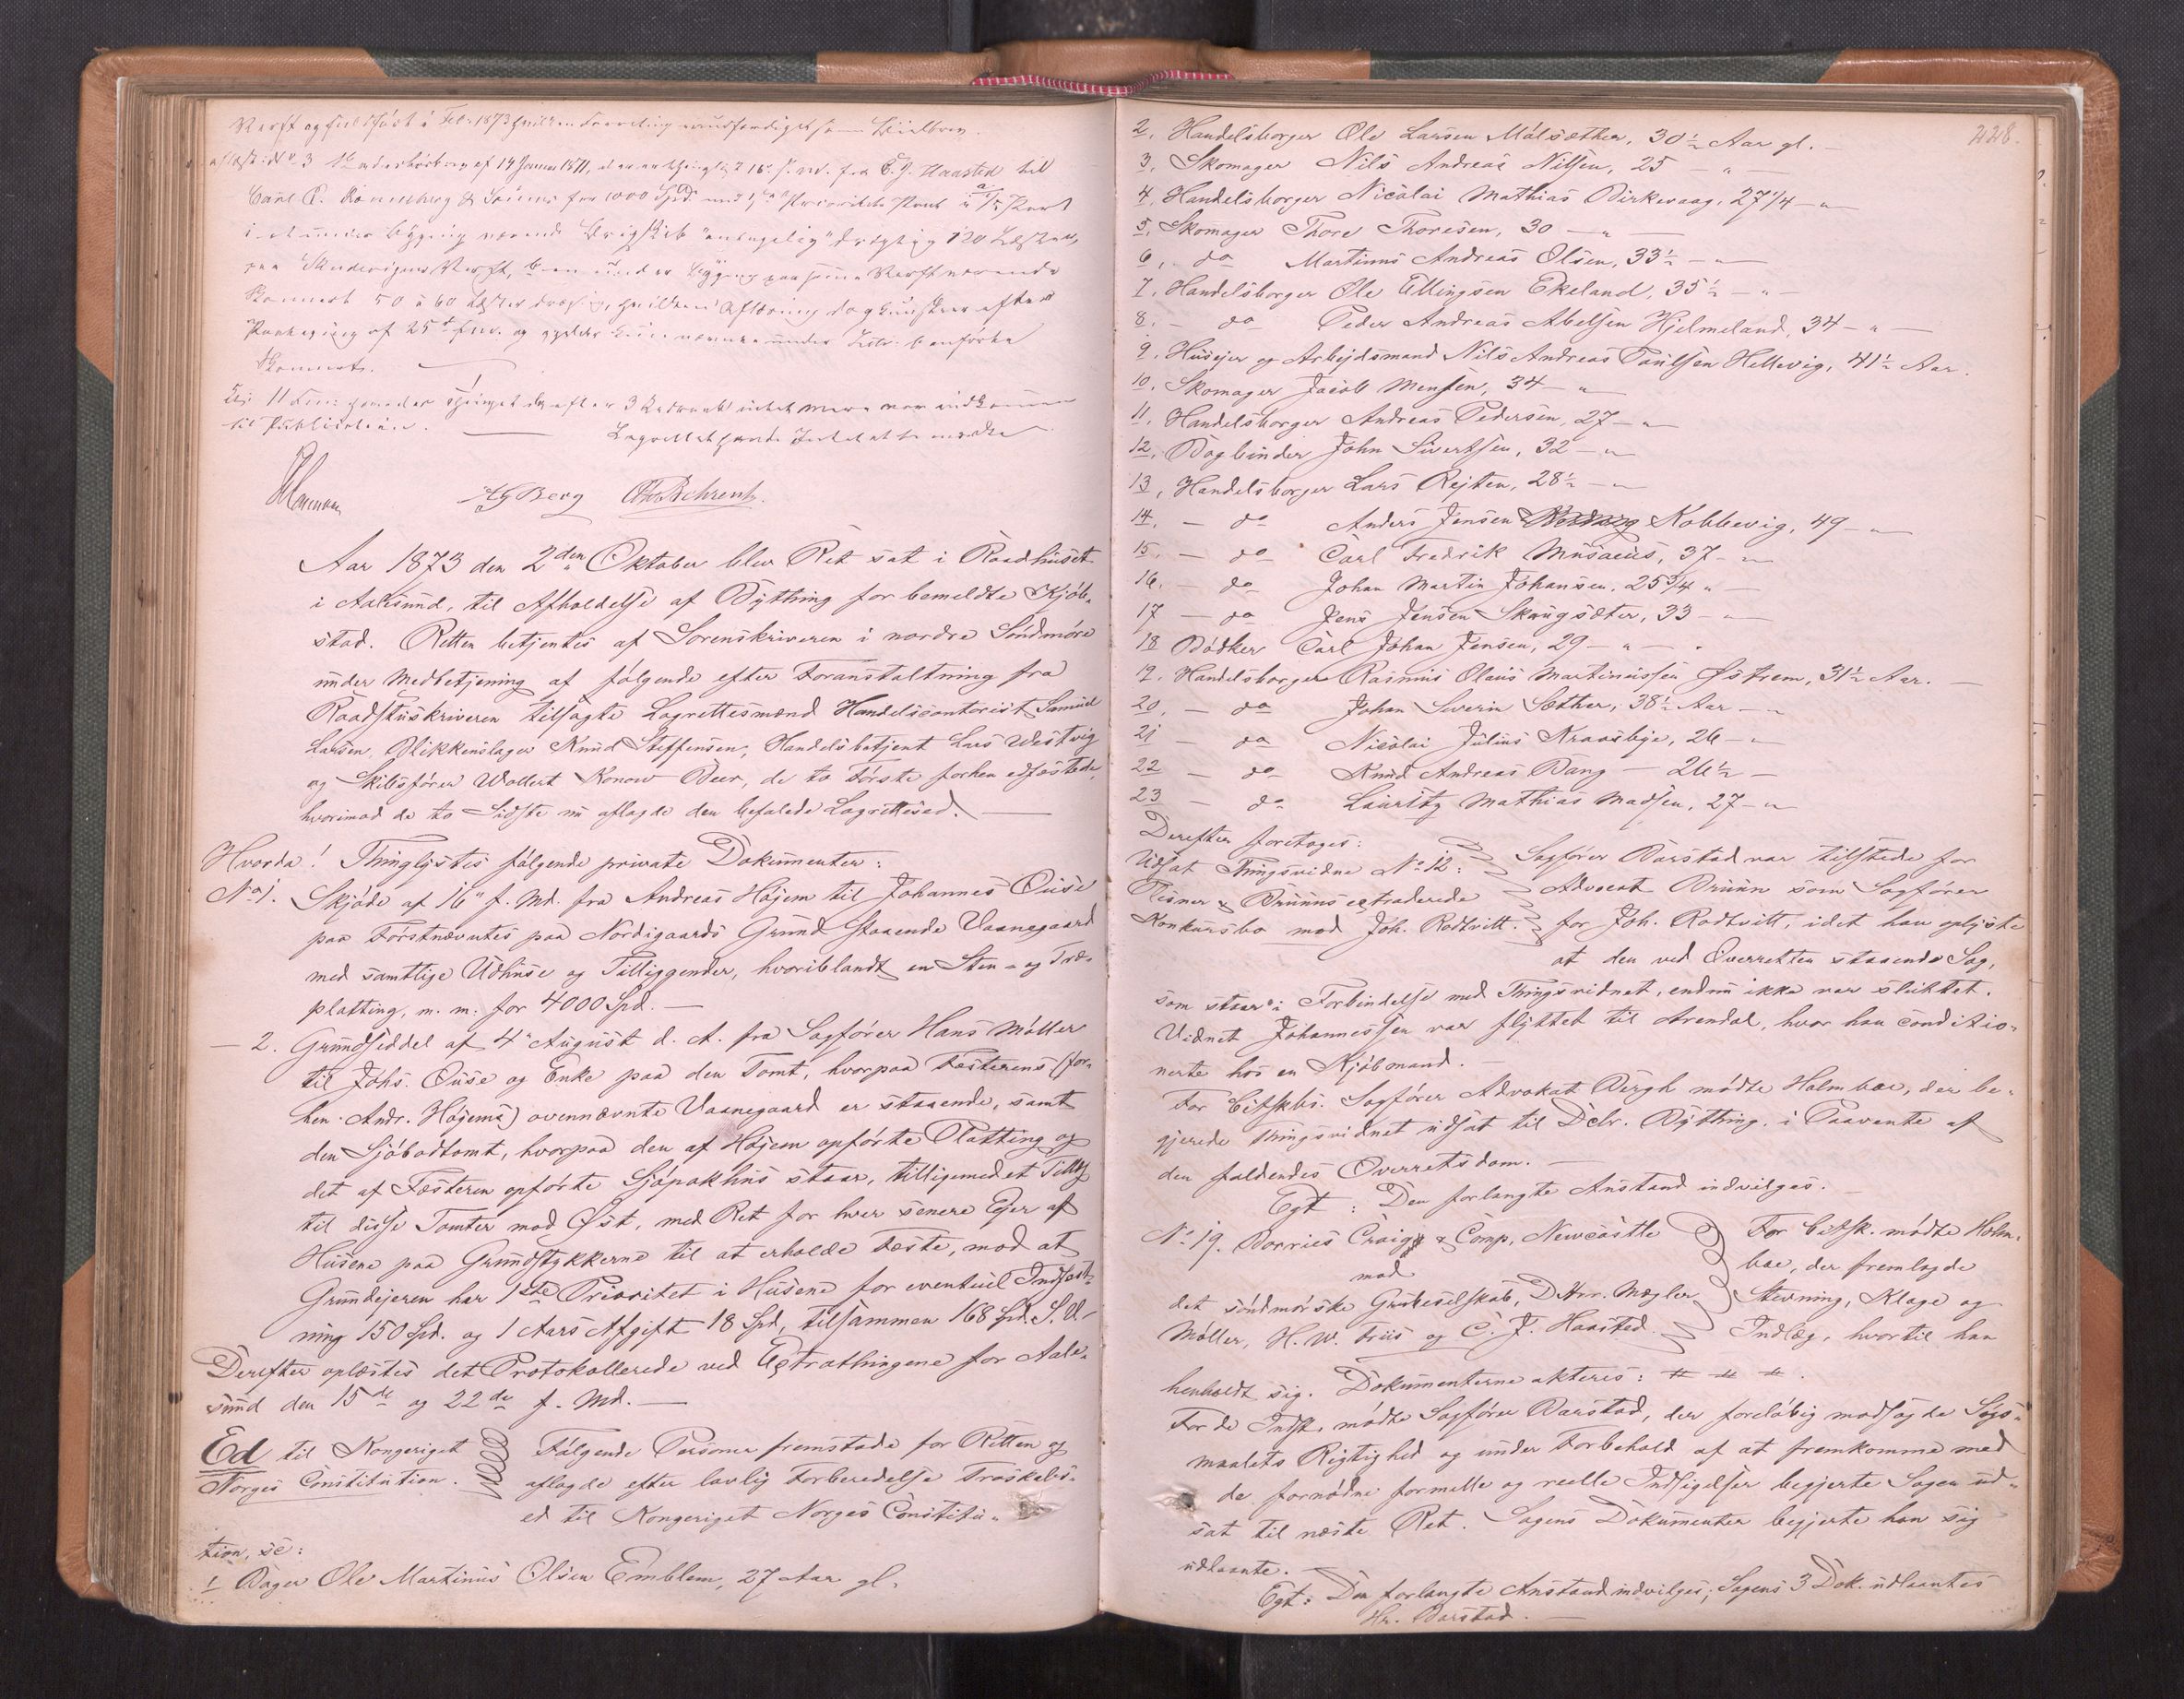 Værft og fuldført i Febr. 1873 hvilken
aflæst: No 3 af 14 Januar 1871, fra C. J. Haasted til
Carl E. Rønneberg & Sønner for 1000 Spd. med Prioritets Pant i
i et under Bygning værende Brigskib drægtig 120 Læster,
paa Værft, b en under Bygning paa samme Værft værende
Skonnert 50 à 60 Læster drægtig, hvilken Aflæsning dog
af 25de f. M. og under Litr. b anførte
Skonnert.
3
til Publication. Lagrettet
A G Berg Chr. Behrentz.
Aar 1873 den 2den Oktober blev Ret sat i Raadhuset
i Aalesund, til Afholdelse af Bything for bemeldte Kjøb-
stad. Retten betjentes af Sorenskriveren i nordre Søndmøre
under Medbetjening af følgende efter Foranstaltning fra
Raadstuskriveren tilsagte Lagrettesmænd Handelscontorist Samuel
Larsen, Blikkenslager Knud Steffensen, Handelsbetjent Lars Westvig
og Skibsfører Wollert Konow Beer, de to Første forhen edfæstede,
hvorimod de to Sidste nu aflagde den befalede Lagrettesed. —
Hvorda! Thinglystes følgende private Dokumenter:
No 1. Skjøde af 16de f. Md. fra Andreas Højem til Johannes Ouse
paa Førstnævntes paa Nordigaards Grund staaende Vaanegaard
med samtlige Udhuse og Tilliggender, hvoriblandt en Sten- og Træ-
platting, m. m. for 4000 Spd. —
— 2. Grundseddel af 4de August d. A. fra Sagfører Hans Møller
til Johs. Ouse og Enke paa den Tomt, hvorpaa Fæsterens (for-
hen Andr. Højems) ovennævnte Vaanegaard er staaende, samt
den Sjøbodtomt, hvorpaa den af Højem opførte Platting og
det af Fæsteren opførte Sjøpakhus staar, tilligemed et Tillæg
til disse Tomter mod Øst, med Ret for hver senere Ejer af
Husene paa Grundstykkerne til at erholde Fæste, mod at
Grundejeren har 1ste Prioritet i Husene for eventuel Indfæst-
ning 150 Spd. og 1 Aars Afgift 18 Spd, tilsammen 168 Spd. S. V.
Derefter oplæstes det Protokollerede ved Extrathingene for Aale-
sund den 15de og 22de f. Md. —
Ed til Kongeriget Følgende Personer fremstode for Retten og
Norges Constitution. aflagde efter lovlig Forberedelse Troskabs-
ed til Kongeriget Norges Constitu-
tion, se:
1 Bager Ole Martinus Olsen Emblem, 27 Aar gl.
228.
2. Handelsborger Ole Larsen Målsæther, 30½ Aar gl. —
3. Skomager Nils Andreas Nilsen, 25 — " —
4. Handelsborger Nicolai Mathias Birkevaag, 27¼ — " —
5. Skomager Thore Thoresen, 30 — " —
6. do Martinus Andreas Olsen, 33½ — " —
7. Handelsborger Ole Ellingsen Ekeland, 35½ — " —
8. — do Peder Andreas Abelsen Hjelmeland, 34 — " —
9. Husejer og Arbejdsmand Nils Andreas Paulsen Hellevig, 41½ Aar.
10. Skomager Jacob Monsen, 34 — "
11. Handelsborger Andreas Pedersen, 27 — "
12. Bogbinder John Sivertsen, 32 — "
13. Handelsborger Lars Rejten, 28½ — "
14. — do Anders Jensen Kobbevig, 49 — "
15. — do Carl Fredrik Musaeus, 37 — "
16. — do Johan Martin Johansen, 25¾ " —
17 — do Jens Jensen Skaugsæter, 33 — " —
18 Bødker Carl Johan Jensen, 29 — " — .
19. Handelsborgere Rasmus Olaus Martinussen Østrem, 31½ Aar. —
20. — do Johan Severin Sæther, 38½ Aar — "
21 — do Nicolai Julius Kraasbye, 26 — "
22 — do Knud Andreas Dang — 26½ —
23 — do Lauritz Mathias Madsen, 27 — "
Derefter foretoges:
Udsat Thingsvidne No 12: Sagfører Barstad var tilstede for
& Bruuns extraderede Advocat Bruun som Sagfører
Konkursbo mod Joh. Rodtvitt. for Joh. Rodtvitt, idet han oplyste
at den ved Overretten staaende Sag,
som staar i Forbindelse med Thingsvidnet, endnu ikke var sluttet.
Vidnet Johannessen var flyttet til Arendal, hvor han conditio-
nerte hos en Kjøbmand. —
For Citskbs. Sagfører Advokat Bergh mødte Holmboe, der be-
gjerede Thingsvidnet udsat til Debr. Bything, i Paavente af
den faldendes Overretsdom. —
Egt: Den forlangte Anstand indvilges. —
No 19. Borries Craig & Comp, Newcastle For Citsk. mødte Holm-
mod boe, der fremlagde
det søndmørske Grubeselskab, DHrr. Mægler Stevning, Klage og
Møller, H. W. Friis og C. J. Haasted. Indlæg, hvortil han
henholdt sig. Dokumenterne akteres: # # # .
For de Indst. mødte Sagfører Barstad, der foreløbig modsagde Søgs-
maalets Rigtighed og under Forbehold af at fremkomme med
de fornødne formelle og reelle Indsigelser begjerte Sagen ud-
sat til næste Ret. Sagens Dokumenter begjerte han sig
udlaante. —
Egt: Den forlangte Anstand indvilges; Sagens 3 Dok. udlaantes
Hr. Barstad. —